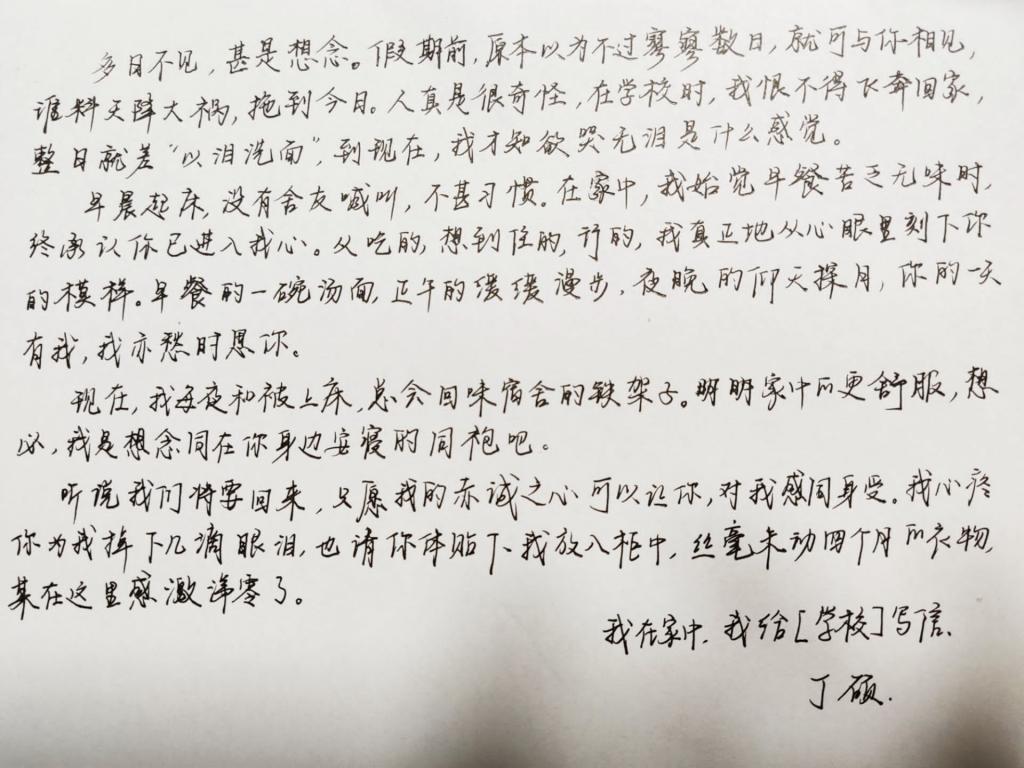 多日不见，甚是想念。假期前，原本以为不过寥寥数日，就可与你相见，
谁料天降大祸，拖到今日。人真是很奇怪，在学校时，我恨不得飞奔回家，
整日就差“以泪洗面”，到现在，我才知欲哭无泪是什么感觉。
早晨起床，没有舍友喊叫，不甚习惯。在家中，我始觉早餐苦乏无味时，
终承认你已进入我心。从吃的，想到住的，行的，我真正地从心眼里刻下你
的模样。早餐的一碗汤面，正午的缓缓漫步，夜晚的仰天探月，你的一天
有我，我亦愁时恩你。
现在，我每夜和被上床，总会回味宿舍的铁架子。明明家中的更舒服，想
必，我是想念同在你身边安寝的同袍吧。
听说我们将要回来，只愿我的赤诚之心可以让你，对我感同身受。我心疼
你为我掉下几滴眼泪，也请你体贴下我放入柜中，丝毫未动四个月的衣物，
某在这里感激涕零了。
我在家中，我给[学校]写信.
丁硕.